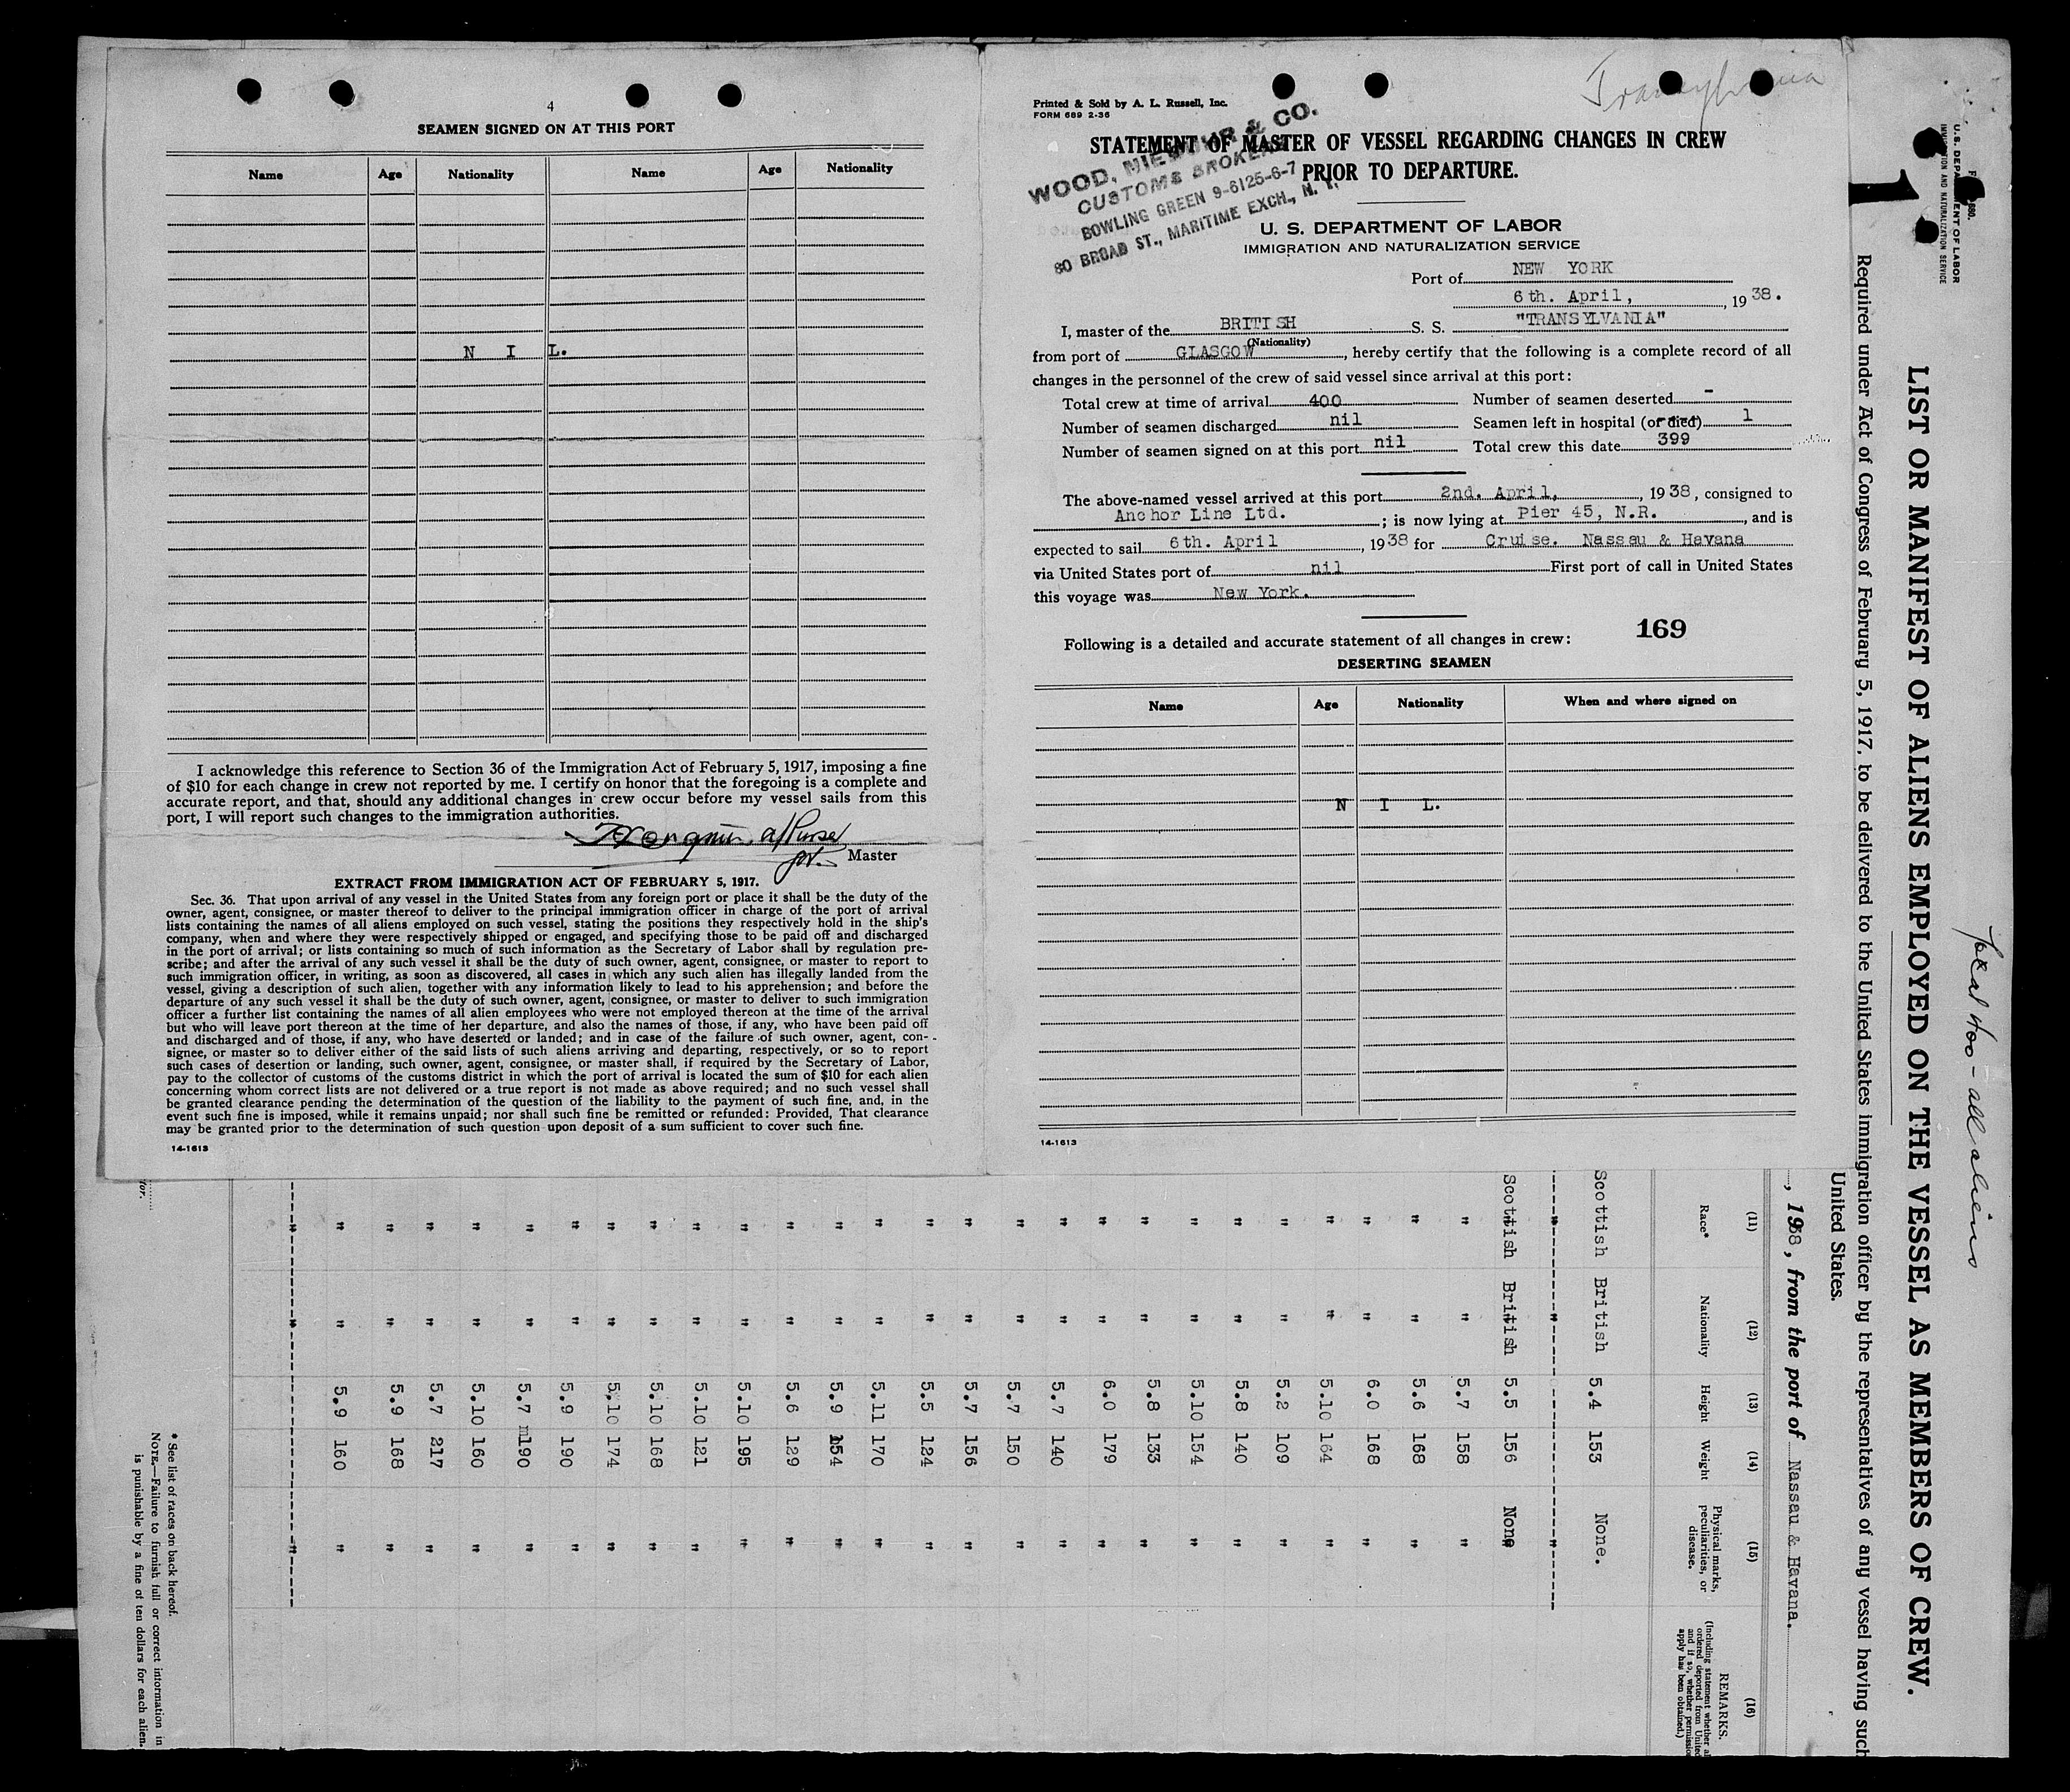 4
SEAMEN SIGNED ON AT THIS PORT
Name Age Nationality Name Age Nationality
N I L.
I acknowledge this reference to Section 36 of the Immigration Act of February 5, 1917, imposing a fine
of $10 for each change in crew not reported by me. I certify on honor that the foregoing is a complete and
accurate report, and that, should any additional changes in crew occur before my vessel sails from this
port, I will report such changes to the immigration authorities.
a/Purser
for. Master
EXTRACT FROM IMMIGRATION ACT OF FEBRUARY 5, 1917.
Sec. 36. That upon arrival of any vessel in the United States from any foreign port or place it shall be the duty of the
owner, agent, consignee, or master thereof to deliver to the principal immigration officer in charge of the port of arrival
lists containing the names of all aliens employed on such vessel, stating the positions they respectively hold in the ship's
company, when and where they were respectively shipped or engaged, and specifying those to be paid off and discharged
in the port of arrival; or lists containing so much of such information as the Secretary of Labor shall by regulation pre-
scribe; and after the arrival of any such vessel it shall be the duty of such owner, agent, consignee, or master to report to
such immigration officer, in writing, as soon as discovered, all cases in which any such alien has illegally landed from the
vessel, giving a description of such alien, together with any information likely to lead to his apprehension; and before the
departure of any such vessel it shall be the duty of such owner, agent, consignee, or master to deliver to such immigration
officer a further list containing the names of all alien employees who were not employed thereon at the time of the arrival
but who will leave port thereon at the time of her departure, and also the names of those, if any, who have been paid off
and discharged and of those, if any, who have deserted or landed; and in case of the failure of such owner, agent, con-
signee, or master so to deliver either of the said lists of such aliens arriving and departing, respectively, or so to report
such cases of desertion or landing, such owner, agent, consignee, or master shall, if required by the Secretary of Labor,
pay to the collector of customs of the customs district in which the port of arrival is located the sum of $10 for each alien
concerning whom correct lists are not delivered or a true report is not made as above required; and no such vessel shall
be granted clearance pending the determination of the question of the liability to the payment of such fine, and, in the
event such fine is imposed, while it remains unpaid; nor shall such fine be remitted or refunded: Provided, That clearance
may be granted prior to the determination of such question upon deposit of a sum sufficient to cover such fine.
14-1613
Transylvania
Printed & Sold by A. L. Russell, Inc.
FORM 689 2-36
STATEMENT OF MASTER OF VESSEL REGARDING CHANGES IN CREW
PRIOR TO DEPARTURE.
WOOD, NIEBUHR & CO.
CUSTOMS BROKERS
BOWLING GREEN 9-6125-6-7
80 BROAD ST., MARITIME EXCH., N. Y.
U. S. DEPARTMENT OF LABOR
IMMIGRATION AND NATURALIZATION SERVICE
Port of NEW YORK
6th. April, , 1938.
I, master of the BRITISH S. S. "TRANSYLVANIA"
(Nationality)
from port of GLASGOW, hereby certify that the following is a complete record of all
changes in the personnel of the crew of said vessel since arrival at this port:
Total crew at time of arrival 400 Number of seamen deserted -
Number of seamen discharged nil Seamen left in hospital (or died) 1
Number of seamen signed on at this port nil Total crew this date 399
The above-named vessel arrived at this port 2nd. April, , 1938, consigned to
Anchor Line Ltd. ; is now lying at Pier 45, N.R. , and is
expected to sail 6th. April , 1938 for Cruise. Nassau & Havana
via United States port of nil First port of call in United States
this voyage was New York.
169
Following is a detailed and accurate statement of all changes in crew:
DESERTING SEAMEN
Name Age Nationality When and where signed on
N I L.
14-1613
1
U. S. DEPARTMENT OF LABOR
IMMIGRATION AND NATURALIZATION SERVICE
Total 400 - all aliens
LIST OR MANIFEST OF ALIENS EMPLOYED ON THE VESSEL AS MEMBERS OF CREW.
Required under Act of Congress of February 5, 1917, to be delivered to the United States immigration officer by the representatives of any vessel having such
United States.
, 1938, from the port of Nassau & Havana.
(11) (12) (13) (14) (15) (16)
Race* Nationality Height Weight Physical marks, peculiarities, or disease. REMARKS.
(Including statement whether
ordered deported from United
and if so, whether permission
apply has been obtained.)
Scottish British 5.4 153 None.
" " "
Scottish British 5.5 156 None
" " 5.7 158 "
" " 5.6 168 "
" " 6.0 168 "
" " 5.10 164 "
" " 5.2 109 "
" " 5.8 140 "
" " 5.10 154 "
" " 5.8 133 "
" " 6.0 179 "
" " 5.7 140 "
" " 5.7 150 "
" " 5.7 156 "
" " 5.5 124 "
" " 5.11 170 "
" " 5.9 154 "
" " 5.6 129 "
" " 5.10 195 "
" " 5.10 121 "
" " 5.10 168 "
" " 5.10 174 "
" " 5.9 190 "
" " 5.7 190 "
" " 5.10 160 "
" " 5.7 217 "
" " 5.9 168 "
" " 5.9 160 "
" " "
* See list of races on back hereof.
NOTE.—Failure to furnish full or correct information in
is punishable by a fine of ten dollars for each alien.